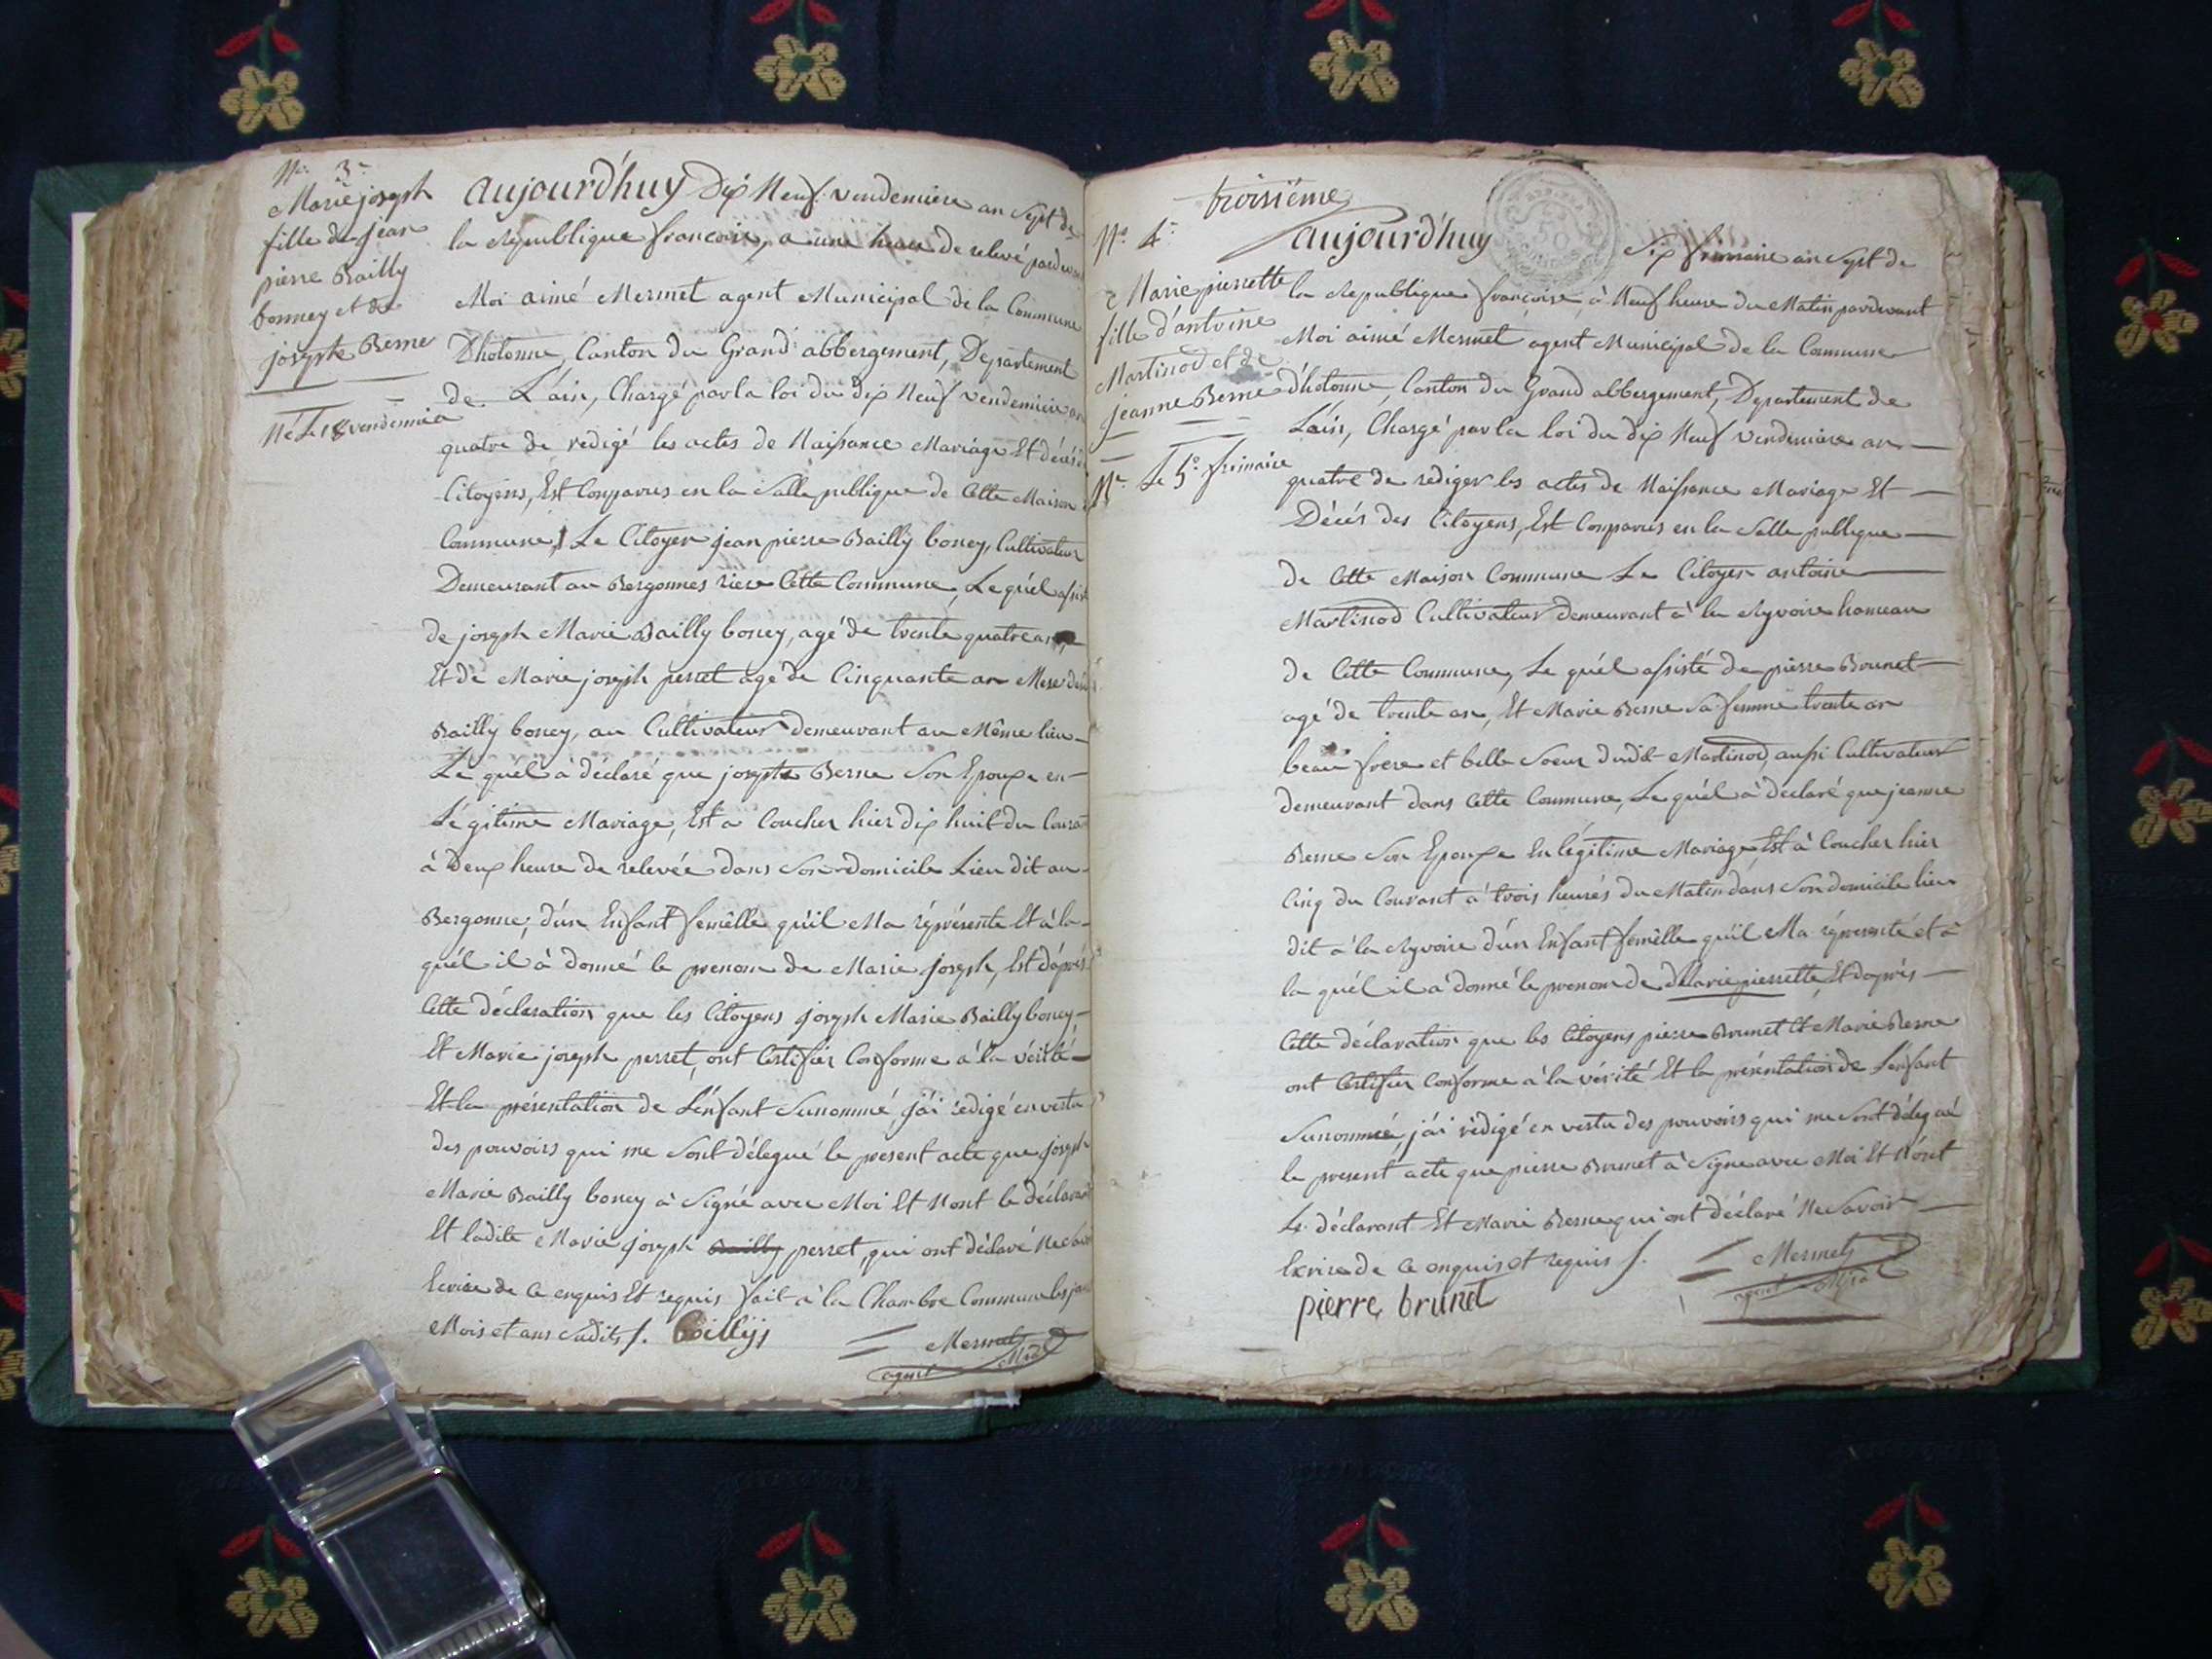 No. 3e
Marie joseph
fille de jean
pierre Bailly
bonney et de
josephe Berne
Né Le 18 vendemia
aujourd'huy Dix Neuf vendemiere an Sept de
la Republique francoise, a une heure de relevé pardevan
Moi aimé Mermet agent Municipal de la Commune
D'hotonne, Canton du Grand abbergement, Departement
de L'ain, Chargé par la loi du dix Neuf vendemiere an
quatre de redigé les actes de Naissance Mariage Et décès d
Citoyens, Est Comparus en la Salle publique de Cette Maison
Commune, Le Citoyen jean pierre Bailly boney, Cultivateur
Demeurant au Bergonnes riere Cette Commune, Le quel assist
de joseph Marie Bailly boney, agé de trente quatre an
Et de Marie joseph perret agé de Cinquante an Mere dud
Bailly boney, au Cultivateur demeurant au Même lieu
Le quel à déclaré que josephe Berne Son Epouse en
Légitime Mariage, Est a Coucher hier dix huit du Coura
à Deux heure de relevée dans Son domicile Lieu dit au
Bergonne, d'un Enfant femêlle qu'il Ma réprésente Et à la
quél il à donné le prenom de Marie joseph, Est d'après
Cette déclaration que les Citoyens joseph Marie Bailly boney
Et Marie joseph perret, ont Certifier Conforme a la vérité
Et la présentation de L'enfant Sunommé j'ai redigé en vertu
des pouvoirs qui me Sont délegué le present acte que joseph
Marie Bailly boney à Signé avec Moi Et Nont le déclarant
Et ladite Marie joseph Bailly perret, qui ont déclaré Ne Savoi
Ecrire de Ce enquis Et requis fait à la Chambre Commune les jou
Mois et ans Sudits /. Bailly
Mermet
agent Mpal
troisiéme
No. 4e
Marie pierrette
fille d'antoine
Martinod et de
jeanne Berne
Né Le 5e frimaire
aujourd'huy Six frimaire an Sept de
la Republique françoise, à Neuf heure du Matin pardevant
Moi aimé Mermet agent Municipal de la Commune
d'hotonne, Canton du Grand abbergement, Departement de
L'ain, Chargé par la loi du dix Neuf vendemiere an
quatre de rediger les actes de Naissance Mariage Et
Décés des Citoyens, Est Comparus en la Salle publique
de Cette Maison Commune Le Citoyen antoine
Martinod Cultivateur demeurant à la Ryvoire hameau
de Cette Commune, Le quél assisté de pierre Brunet
agé de trente an, Et Marie Berne Sa femme trente an
beau frere et belle Soeur dudit Martinod, aussi Cultivateur
demeurant dans Cette Commune, Le quél à déclaré que jeanne
Berne Son Epouse En légitime Mariage Est à Coucher hier
Cinq du Courant a trois heures du Matin dans Son domicile lieu
dit à la Ryvoire d'un Enfant femêlle qu'il Ma répresenté et à
la quél il à donné le prenom de Marie pierrette, Et d'après
Cette déclaration que les Citoyens pierre Brunet Et Marie Berne
ont Certifier Conforme à la vérité Et la présentation de L'enfant
Sunommée, j'ai rédigé en vertu des pouvoirs qui me Sont délegué
le present acte que pierre Brunet à Signe avec Moi Et N'ont
Le déclarant Et Marie Berne qui ont déclaré Ne Savoir
Ecrire de Ce enquis et requis /.
Mermet
agent Mpal
pierre brunet